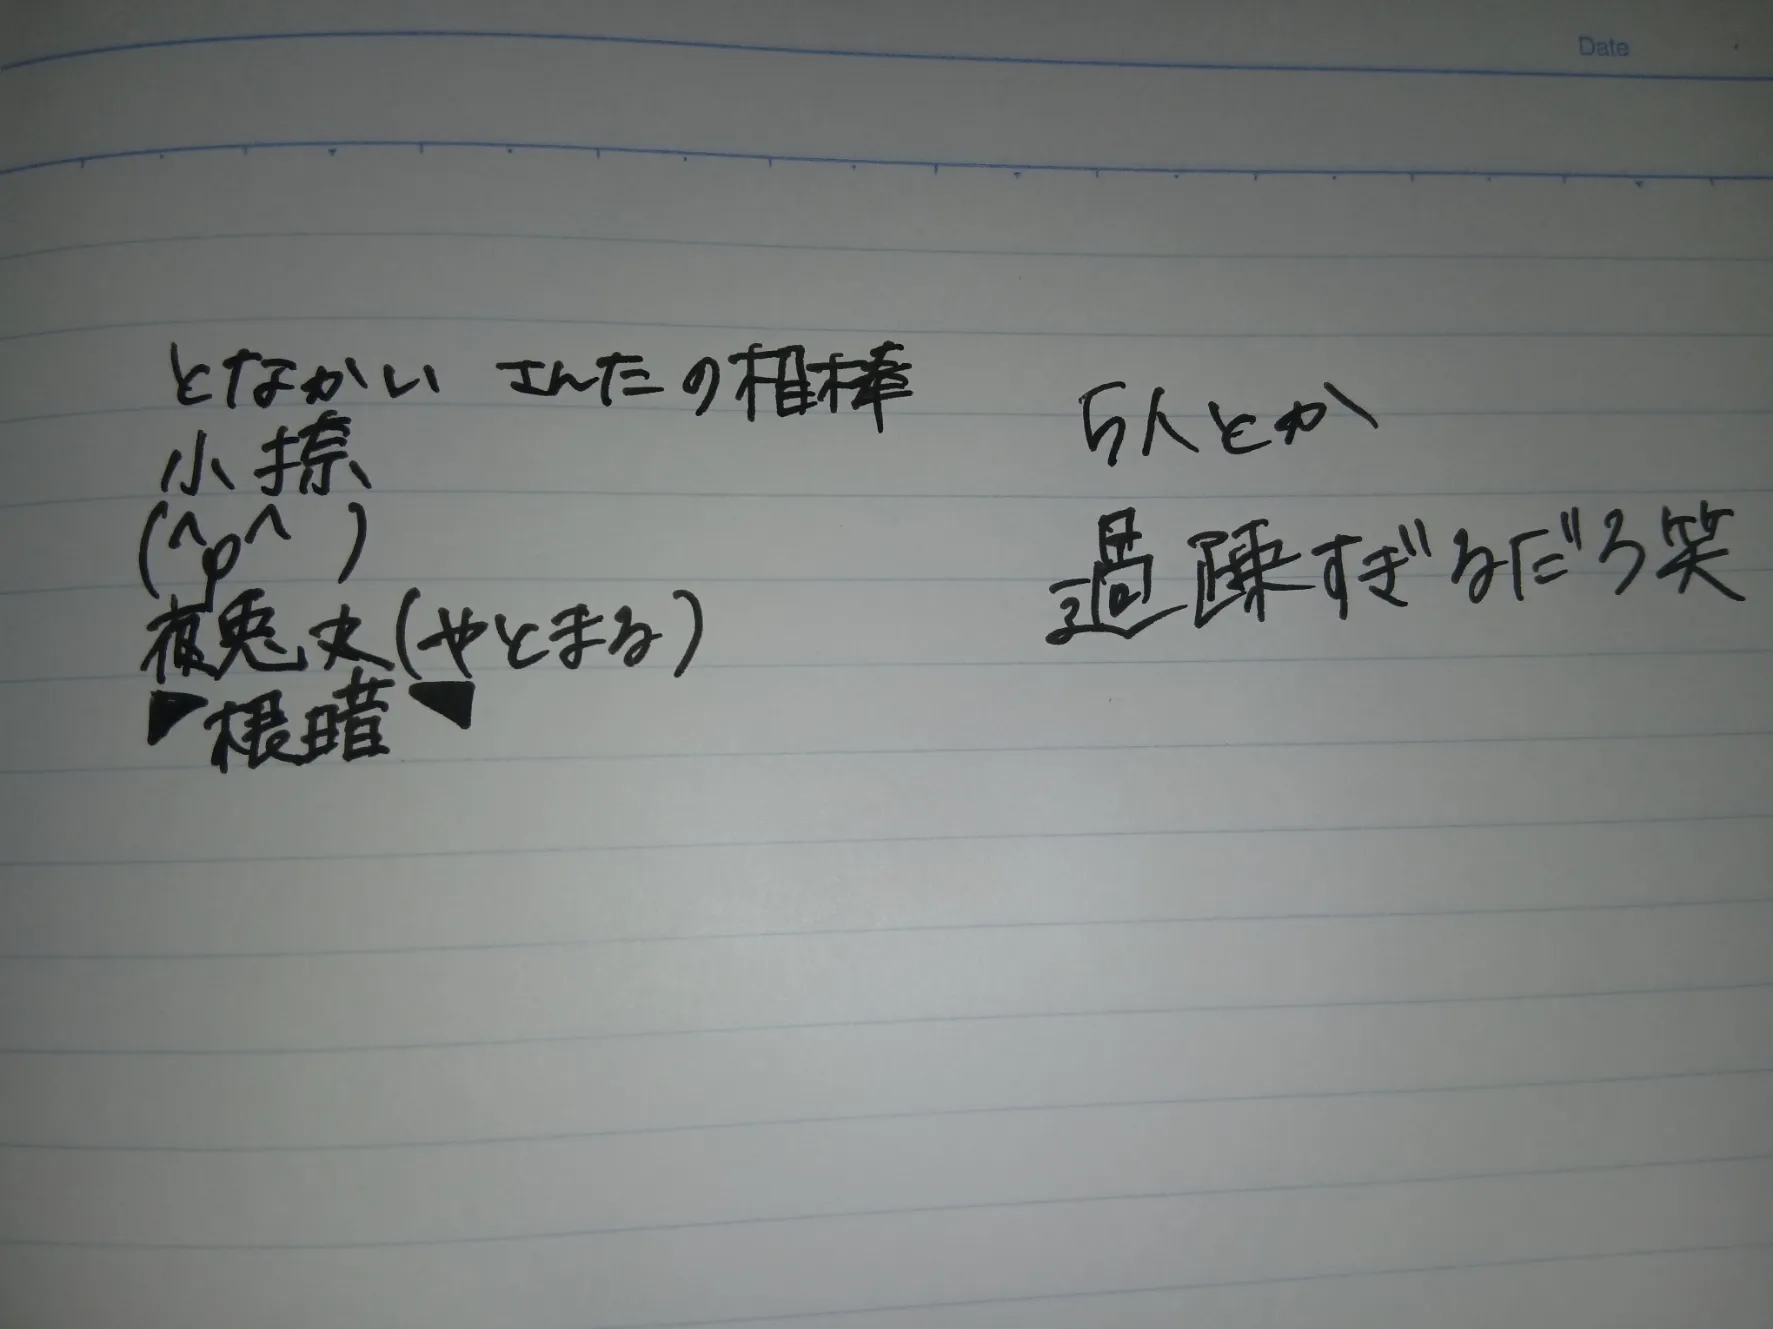 Date
となかい さんたの相棒
小捺
(^p^ )
夜兎丸(やとまる)
◤根暗◥
5人とか
過疎すぎるだろ笑